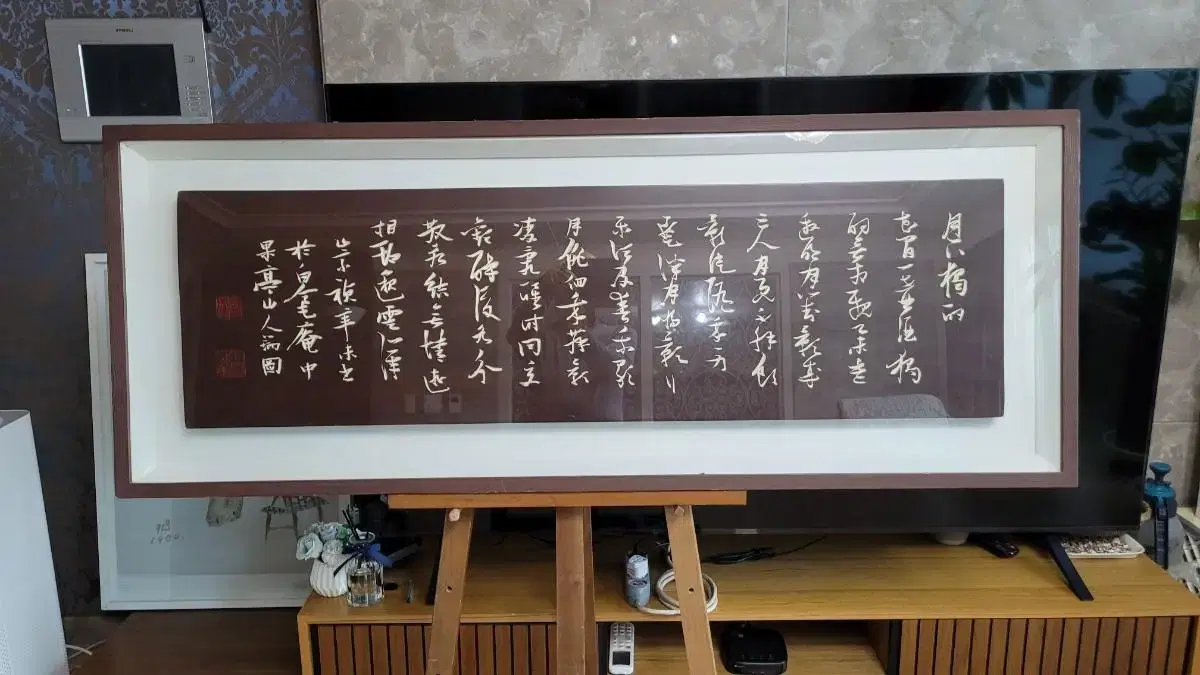 月下獨酌
花間一壺酒獨
酌無相親舉杯
邀明月對影成
三人月既不解飲
影徒隨我身
暫伴月將影行
樂須及春我歌
月徘徊我舞影
凌亂醒時同交
歡醉後各分
散永結無情遊
相期邈雲漢
崇禎辛未書
於白毫庵中
果亭山人瑞圖